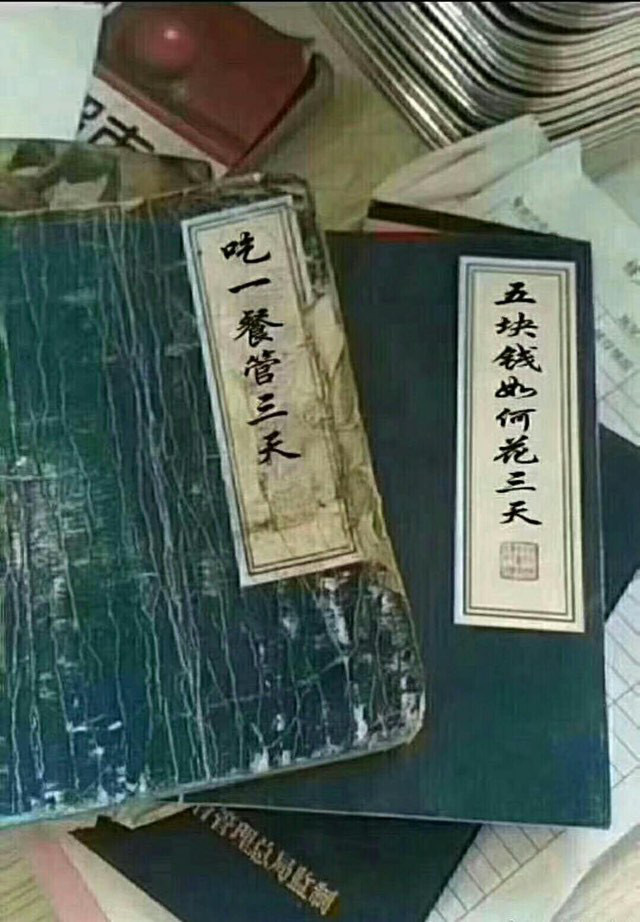 吃一餐管三天
五块钱如何花三天
管理总局监制